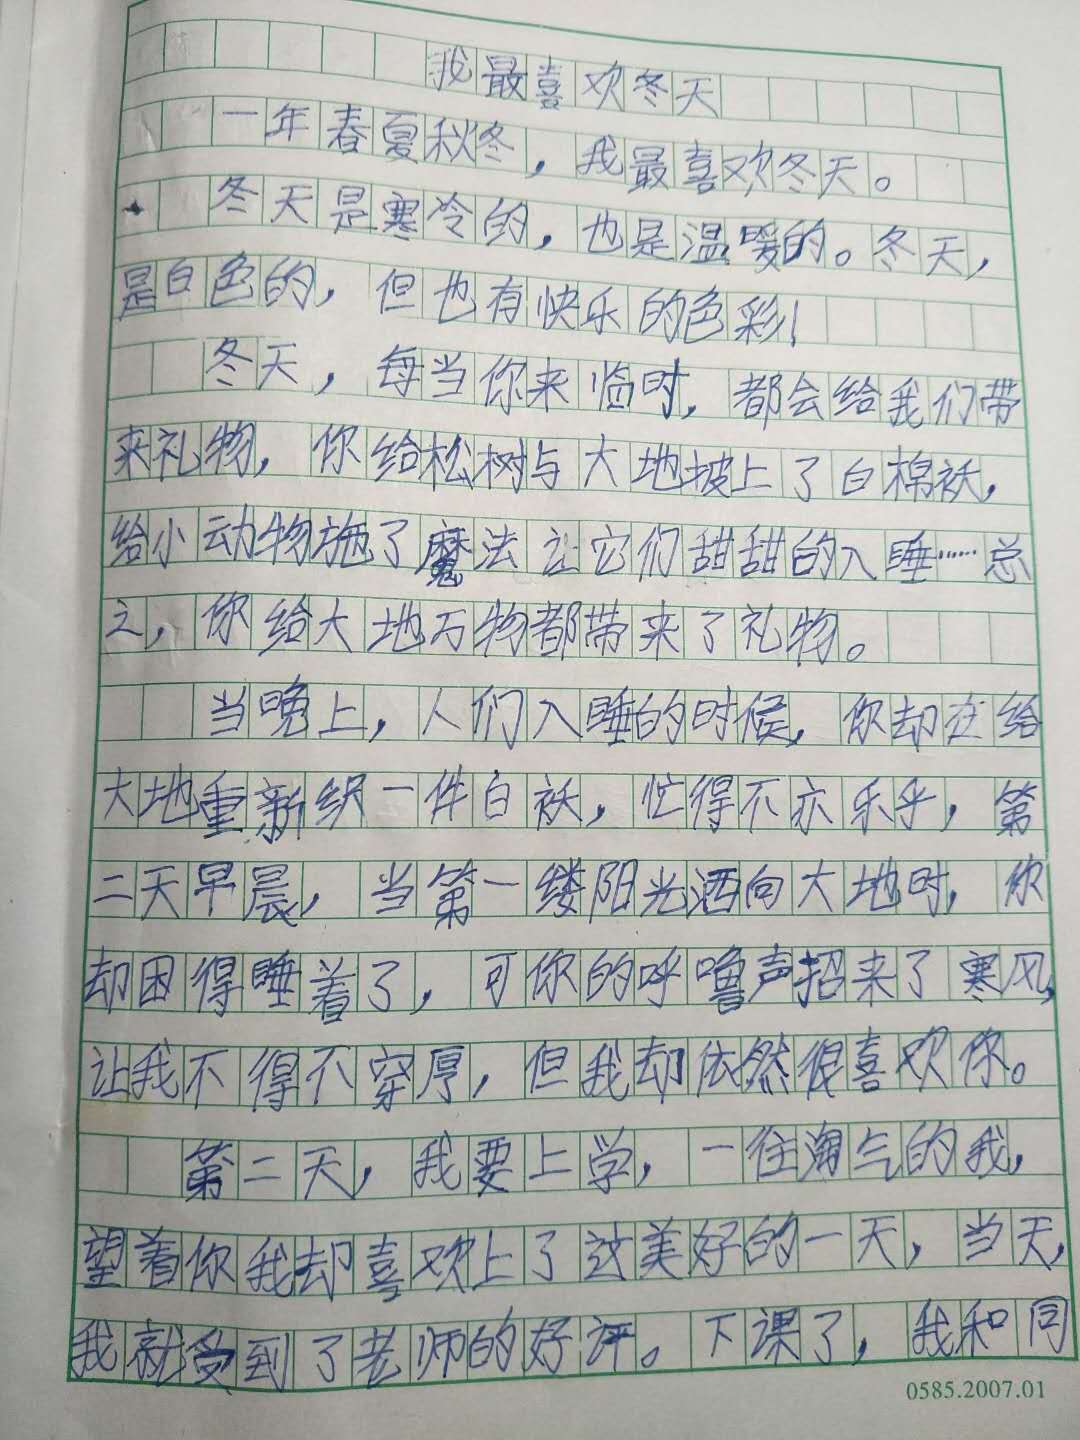 我最喜欢冬天
一年春夏秋冬，我最喜欢冬天。
冬天是寒冷的，也是温暖的。冬天，
是白色的，但也有快乐的色彩！
冬天，每当你来临时，都会给我们带
来礼物，你给松树与大地坡上了白棉袄，
给小动物施了魔法让它们甜甜的入睡……总
之，你给大地万物都带来了礼物。
当晚上，人们入睡的时候，你却在给
大地重新织一件白袄，忙得不亦乐乎，第
二天早晨，当第一缕阳光洒向大地时，你
却困得睡着了，可你的呼噜声招来了寒风，
让我不得不穿厚，但我却依然很喜欢你。
第二天，我要上学，一住淘气的我，
望着你我却喜欢上了这美好的一天，当天，
我就受到了老师的好评。下课了，我和同
0585.2007.01